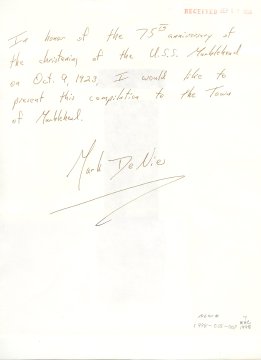 RECEIVED
In honor of the 75th anniversary of
the christening of the U.S.S. Marblehead
on Oct. 9, 1923, I would like to
present this compilation to the Town
of Marblehead.
Mark De Nie